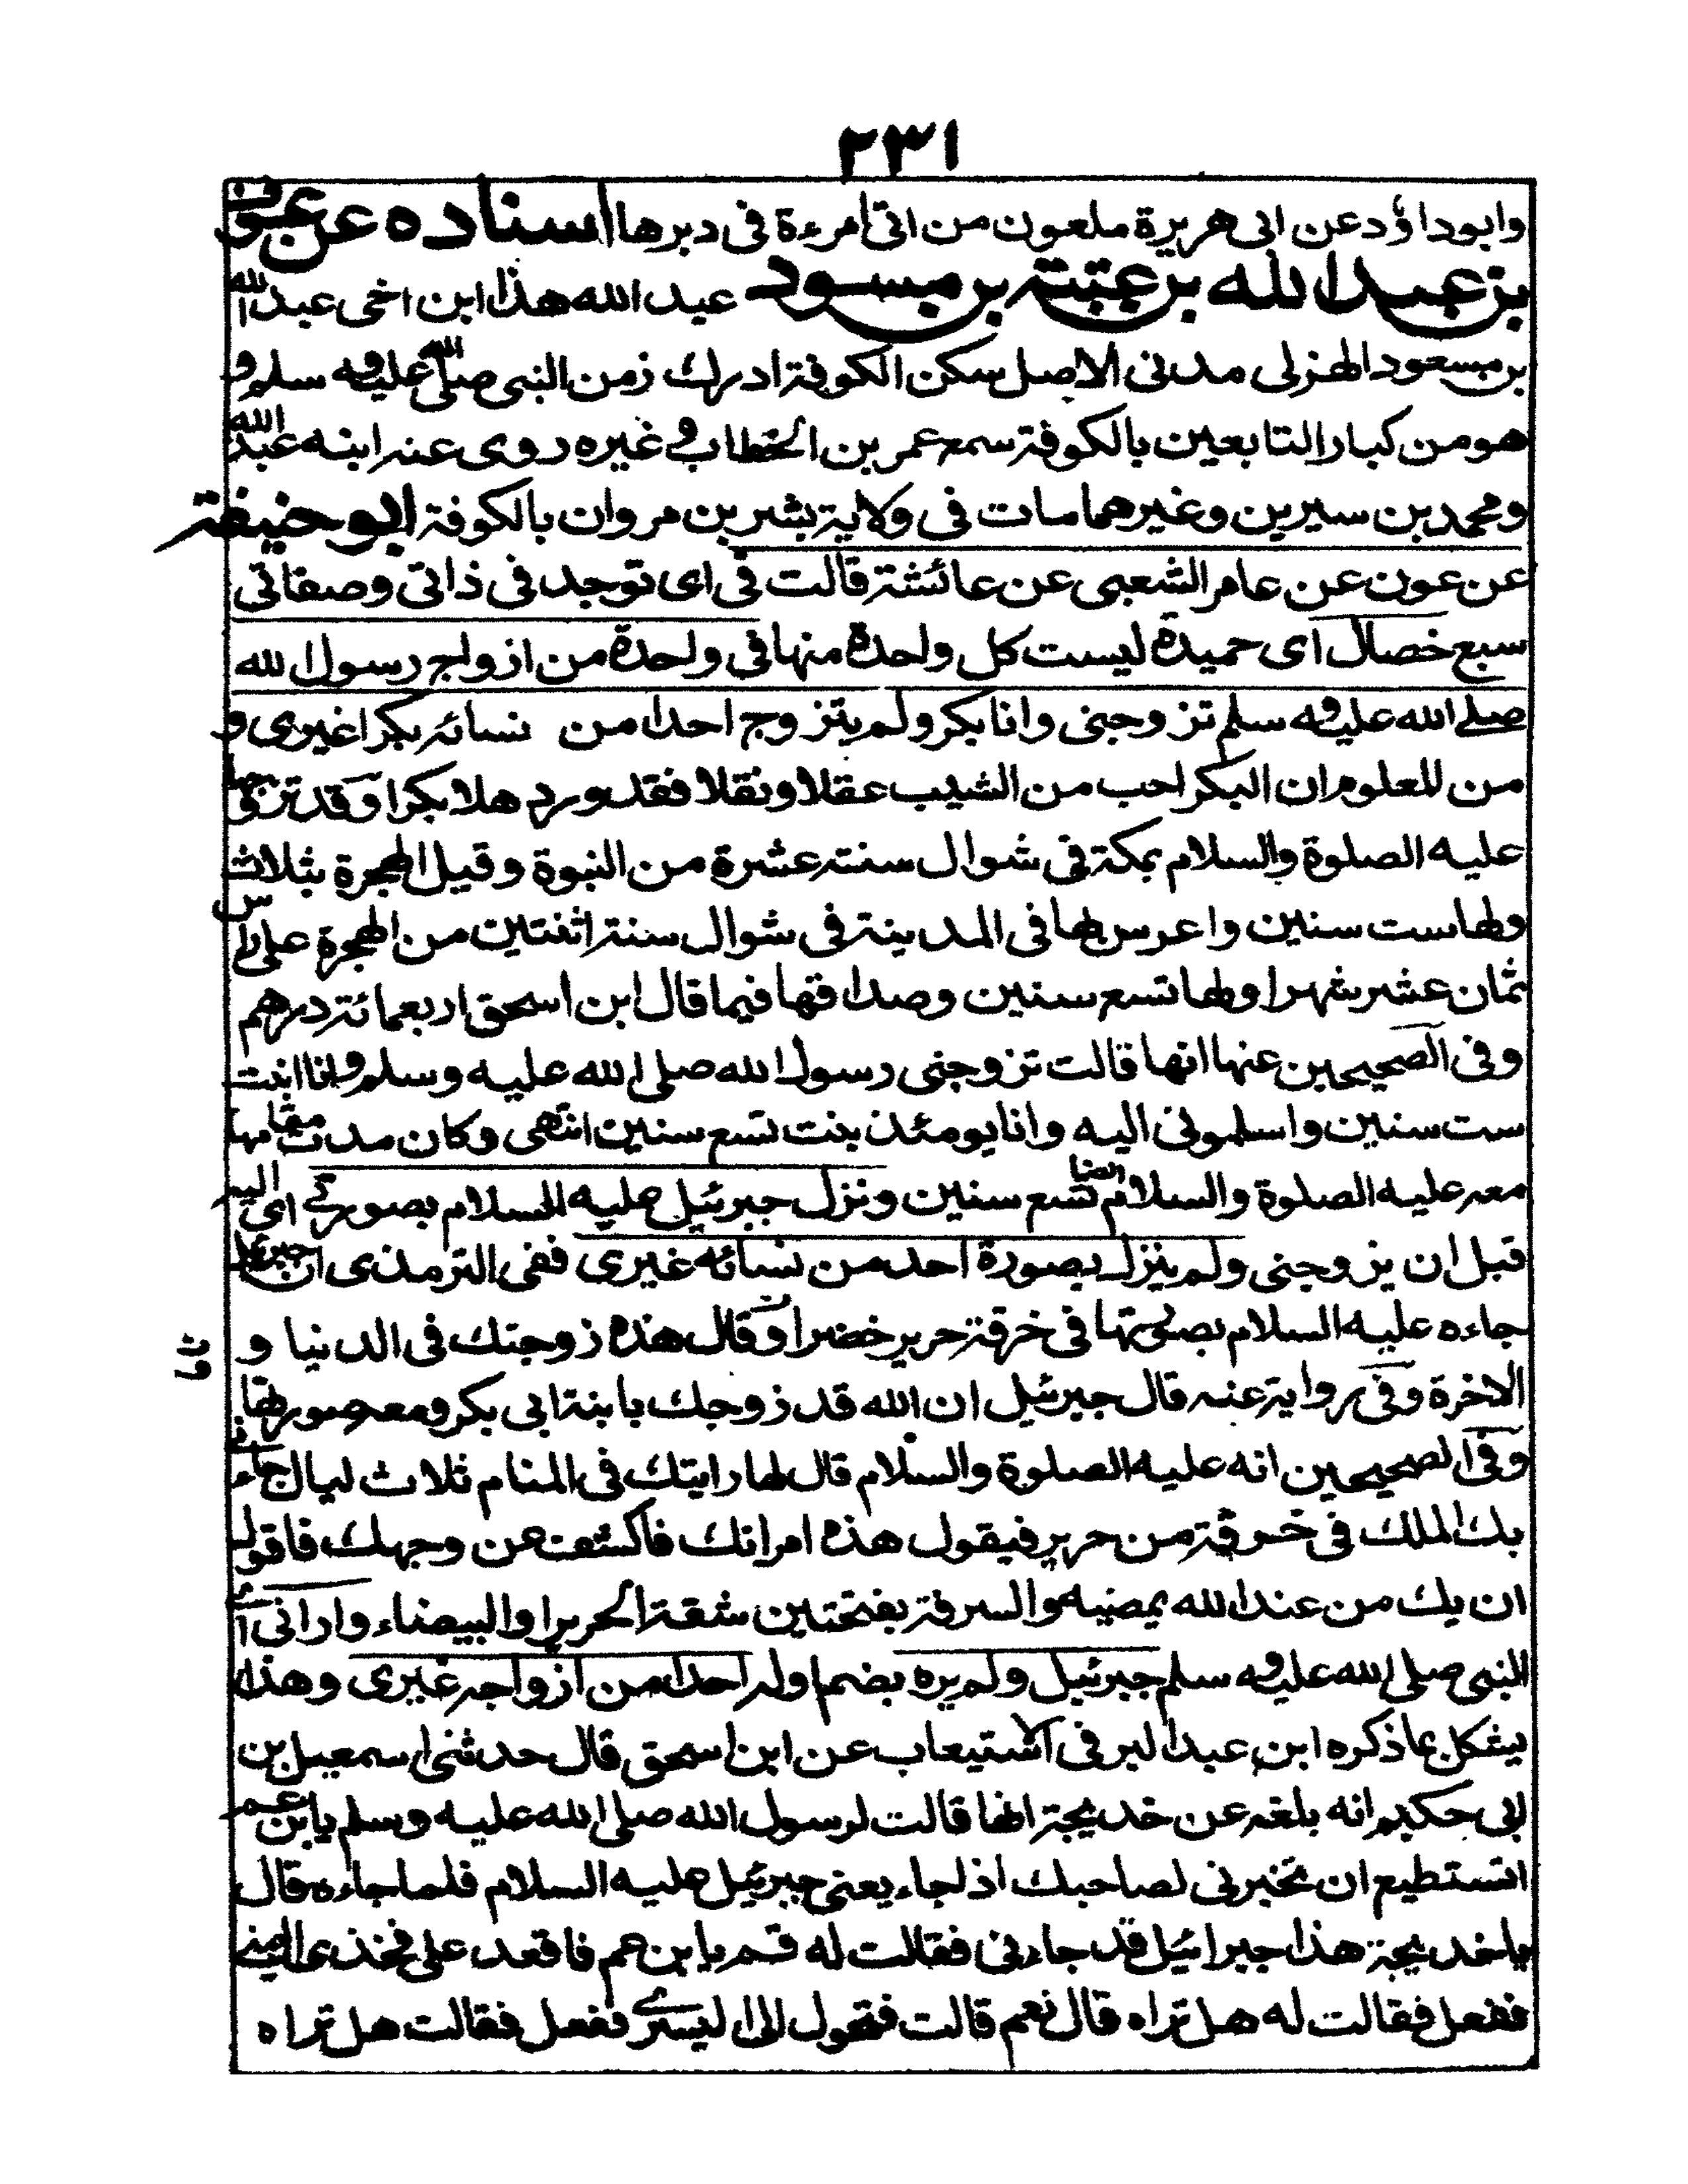 ٢٣١
وابوداؤد عن ابی هریرة ملعون من اتی امرءة فی دبرها اسناده عن عون
بن عبد الله بن عتبة بن مسود عبد الله هذا ابن اخی عبد الله
بن مسعود الهزلی مدنی الاصل سکن الکوفة ادرك زمن النبی صلی الله علیه و سلم و
هو من کبار التابعین بالکوفة سمع عمر بن الخطاب و غیره روی عنه ابنه عبد الله
ومحمد بن سیرین وغیرهما مات فی ولایة بشر بن مروان بالکوفة ابو حنیفة
عن عون عن عامر الشعبی عن عائشة قالت فی ای توجد فی ذاتی وصفاتی
سبع خصال ای حمیدة لیست کل واحدة منها فی واحدة من ازواج رسول الله
صلے الله علیه و سلم تزوجنی وانا بکر ولم یتزوج احدا من نسائه بکرا غیری و
من المعلوم ان البکر احب من الثیب عقلا ونقلا فقد ورد هلا بکرا وقد تزوجها
علیه الصلوة والسلام بمکة فی شوال سنة عشرة من النبوة وقیل الهجرة بثلاث
ولها ست سنین واعرس بها فی المدینة فی شوال سنة اثنتین من الهجرة علی راس
ثمان عشر شهرا ولها تسع سنین وصداقها فیما قال ابن اسحق اربعمائة درهم
وفی الصحیحین عنها انها قالت تزوجنی رسول الله صلی الله علیه وسلم وانا ابنت
ست سنین واسلمونی الیه وانا یومئذ بنت تسع سنین انتهی وکان مدت مقامها
معه علیه الصلوة والسلام ایضا تسع سنین ونزل جبرئیل علیه السلام بصورتی ای الیه
قبل ان یزوجنی ولم ینزل بصورة احد من نسائه غیری ففی الترمذی ان جبرئیل
جاءه علیه السلام بصورتها فی خرقة حریر خضرا وقال هذه زوجتك فی الدنیا و
الاخرة وفی روایة عنه قال جبرئیل ان الله قد زوجك بابنة ابی بکر ومعه صورتها
وفی الصحیحین انه علیه الصلوة والسلام قال لها رایتك فی المنام ثلاث لیال جاءنی
بك الملك فی خرقة من حریر فیقول هذه امراتك فاکشف عن وجهك فاقول
ان یك من عند الله یمضیه والسرقة بفتحتین شقة الحریر او البیضاء وارانی ای
النبی صلی الله علیه و سلم جبرئیل ولم یره بضم اوله احدا من ازواجه غیری وهذا
یشکل بما ذکره ابن عبد البر فی الاستیعاب عن ابن اسحق قال حدثنی اسمعیل بن
ابی حکیم انه بلغه عن خدیجة انها قالت لرسول الله صلی الله علیه وسلم یا ابن عم
اتستطیع ان تخبرنی لصاحبك اذا جاء یعنی جبرئیل علیه السلام فلما جاءه قال
یا خدیجة هذا جبرائیل قد جاءنی فقالت له قم یا بن عم فاقعد علی فخذی الیمنی
ففعل فقالت له هل تراه قال نعم قالت فتحول الی الیسری ففعل فقالت هل تراه